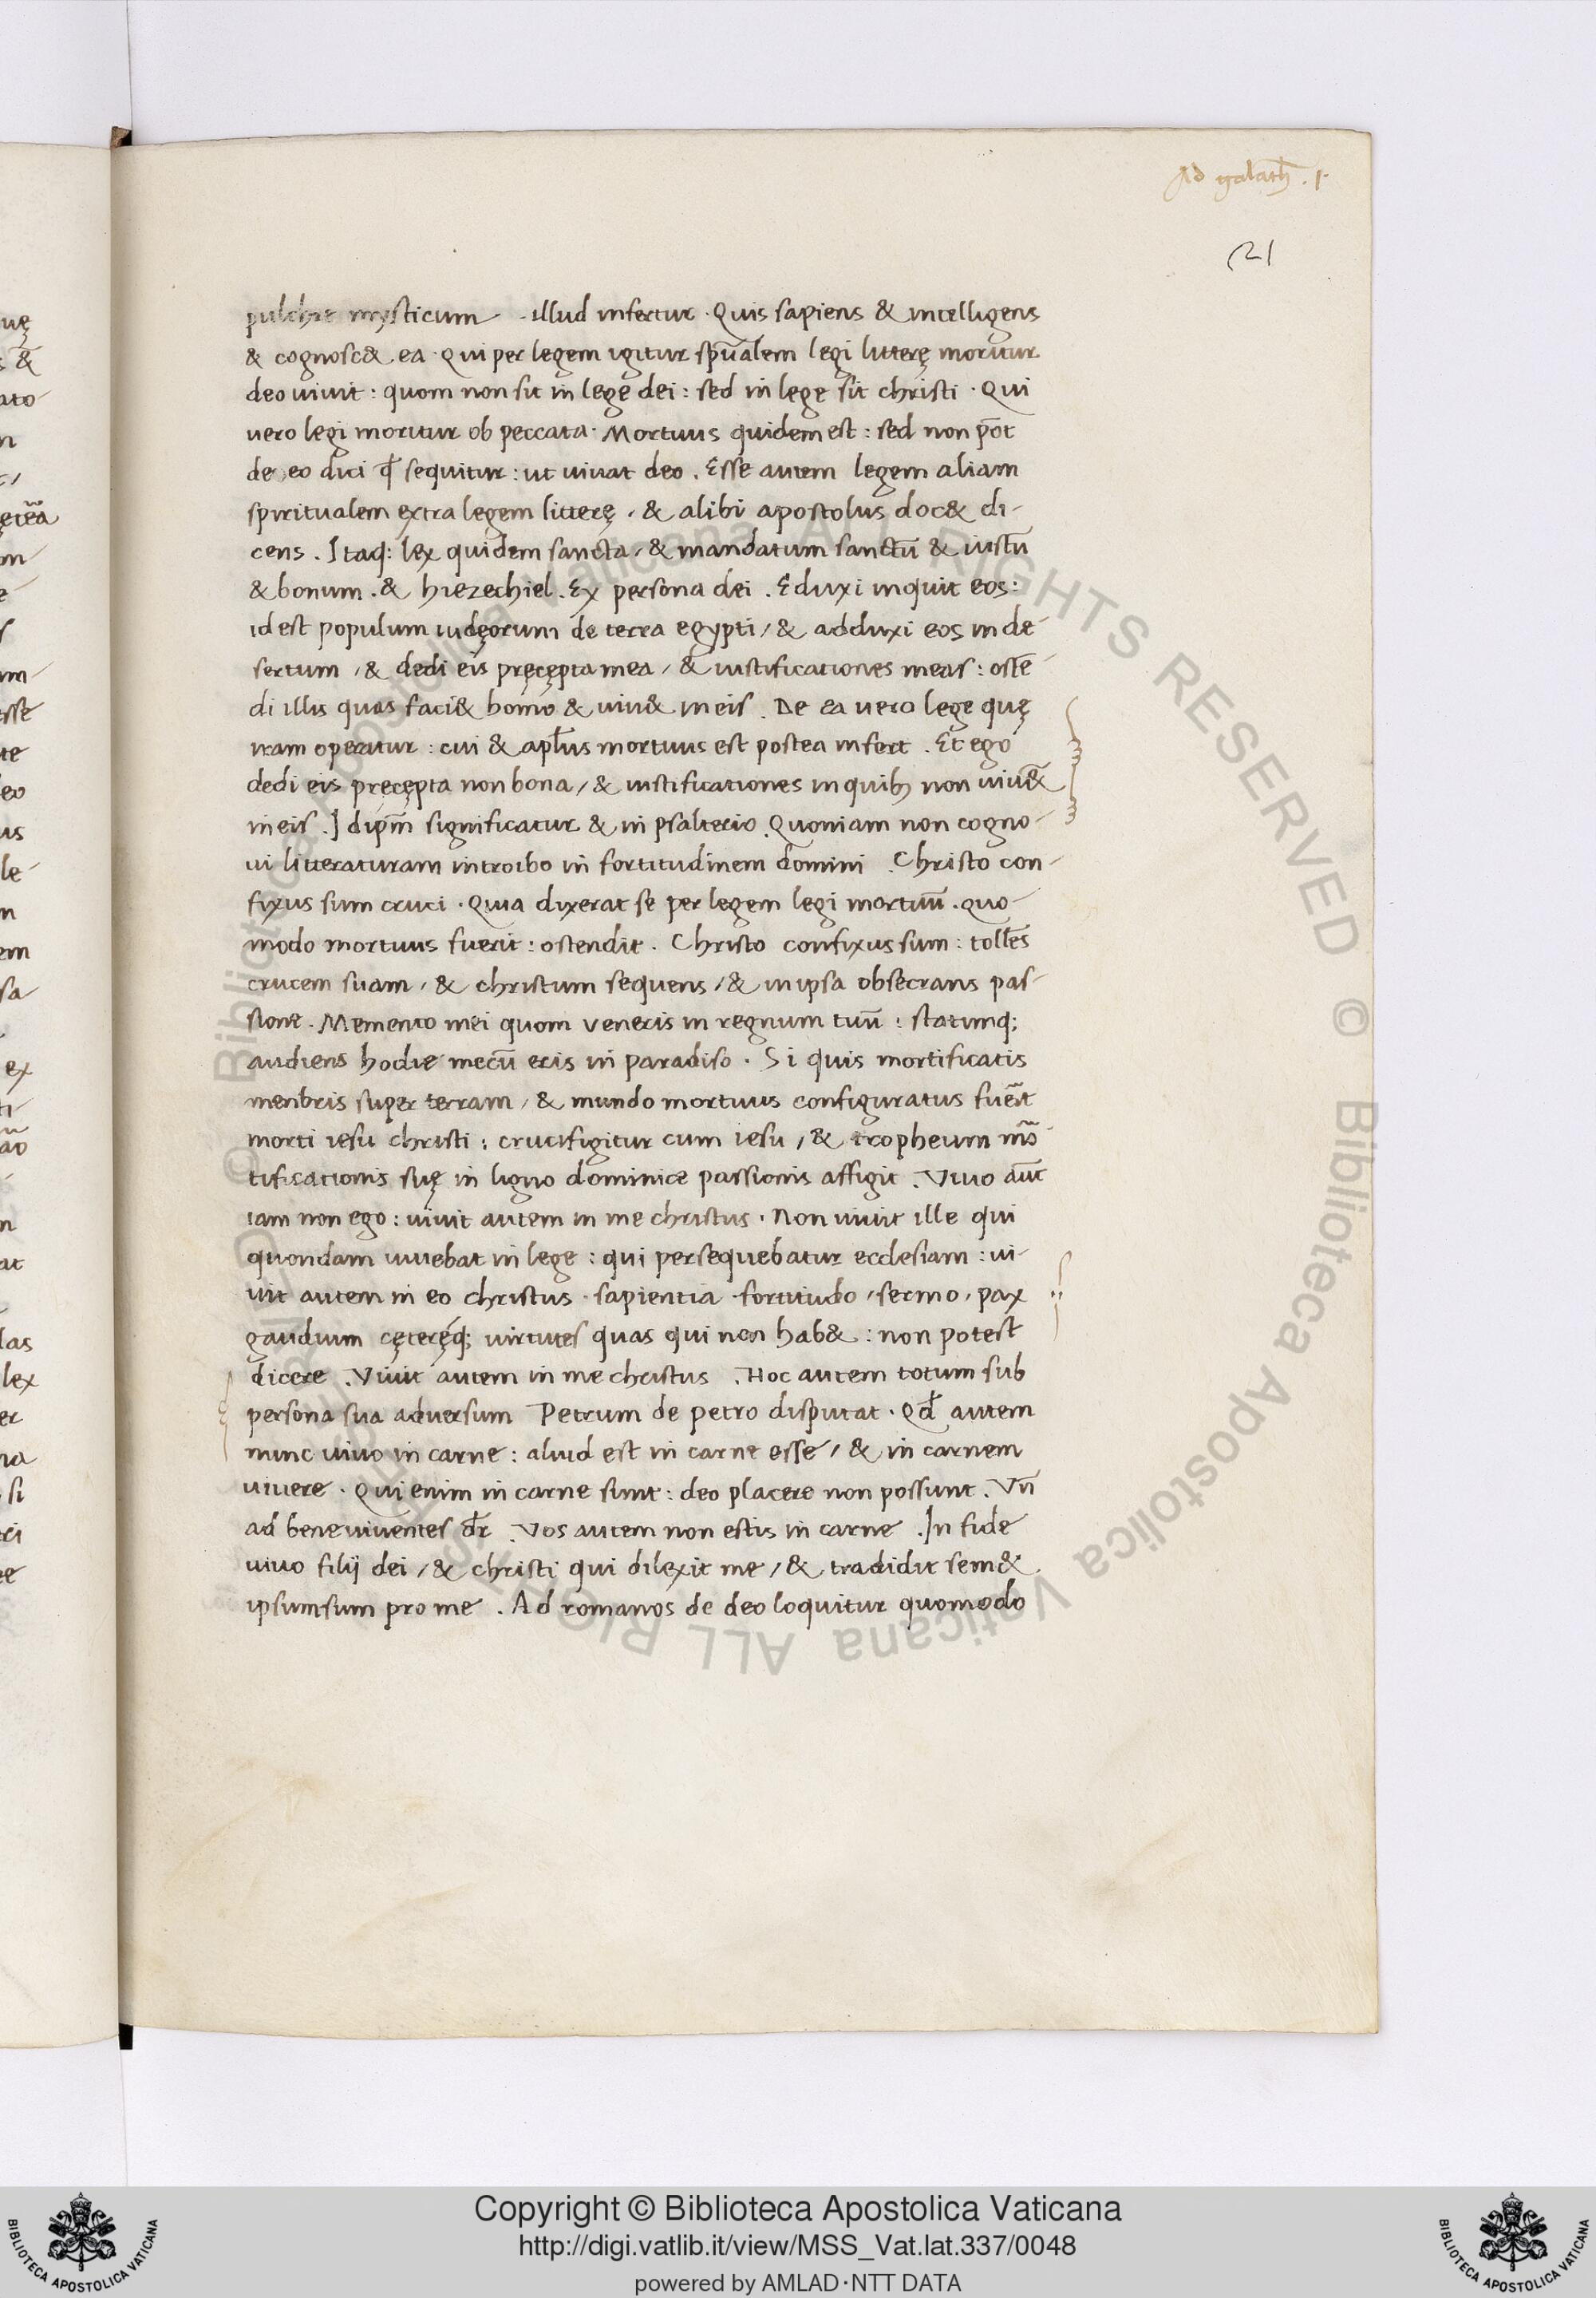 Ad galath̄ . 1.
21
pulchre mysticum illud infertur · Quis sapiens & intelligens
& cognosc& ea · Qui per legem igitur sp̄ualem legi litterę moritur
deo uiuit : quom non sit in lege dei : sed in lege sit christi · Qui
uero legi moritur ob peccata · Mortuus quidem est : sed non pōt
de eo dici ꝙ sequitur : ut uiuat deo . Esse autem legem aliam
spiritualem extra legem litterę , & alibi apostolus doc& di-
cens . Itaq; lex quidem sancta , & mandatum sanctū & iustū
& bonum . & hiezechiel . Ex persona dei . Eduxi inquit eos :
id est populum iudęorum de terra egypti , & adduxi eos in de-
sertum , & dedi eis pręcępta mea , & iustificationes meas : ostē-
di illis quas faci& homo & uiu& in eis . De ea uero lege quę
iram operatur : cui & ap̄lus mortuus est postea infert . Et ego
dedi eis pręcępta non bona , & iustificationes in quib; non uiu&̄
in eis . Idip̄m significatur & in psalterio . Quoniam non cogno-
ui litteraturam introibo in fortitudinem domini . Christo con-
fixus sum cruci · Quia dixerat se per legem legi mortuū . quo-
modo mortuus fuerit : ostendit . Christo confixus sum : tollēs
crucem suam , & christum sequens , & in ipsa obsecrans pas-
sione . Memento mei quom veneris in regnum tuū : statimq;
audiens hodie mecū eris in paradiso . Si quis mortificatis
menbris super terram , & mundo mortuus configuratus fuēit
morti iesu christi : crucifigitur cum iesu , & tropheum mō-
tificationis suę in ligno dominice passionis affigit . Viuo aūt
iam non ego : uiuit autem in me christus . Non uiuit ille qui
quondam uiuebat in lege : qui persequebatur ecclesiam : ui-
uit autem in eo christus · sapientia · fortitudo , sermo , pax
gaudium cęteręq; uirtutes quas qui non hab& : non potest
dicere . Viuit autem in me christus . Hoc autem totum sub
persona sua adversum Petrum de petro disputat . Qđ autem
nunc uiuo in carne : aliud est in carne esse , & in carnem
uiuere . Qui enim in carne sunt : deo placere non possunt . Vn̄
ad bene uiuentes dr̄ . Vos autem non estis in carne . In fide
uiuo filij dei , & christi qui dilexit me , & tradidit sem&
ipsumsum pro me . Ad romanos de deo loquitur quomodo
© Biblioteca Apostolica Vaticana ALL RIGHTS RESERVED
© Biblioteca Apostolica Vaticana ALL RIGHTS RESERVED
Copyright © Biblioteca Apostolica Vaticana
http://digi.vatlib.it/view/MSS_Vat.lat.337/0048
powered by AMLAD·NTT DATA
BIBLIOTECA APOSTOLICA VATICANA
BIBLIOTECA APOSTOLICA VATICANA